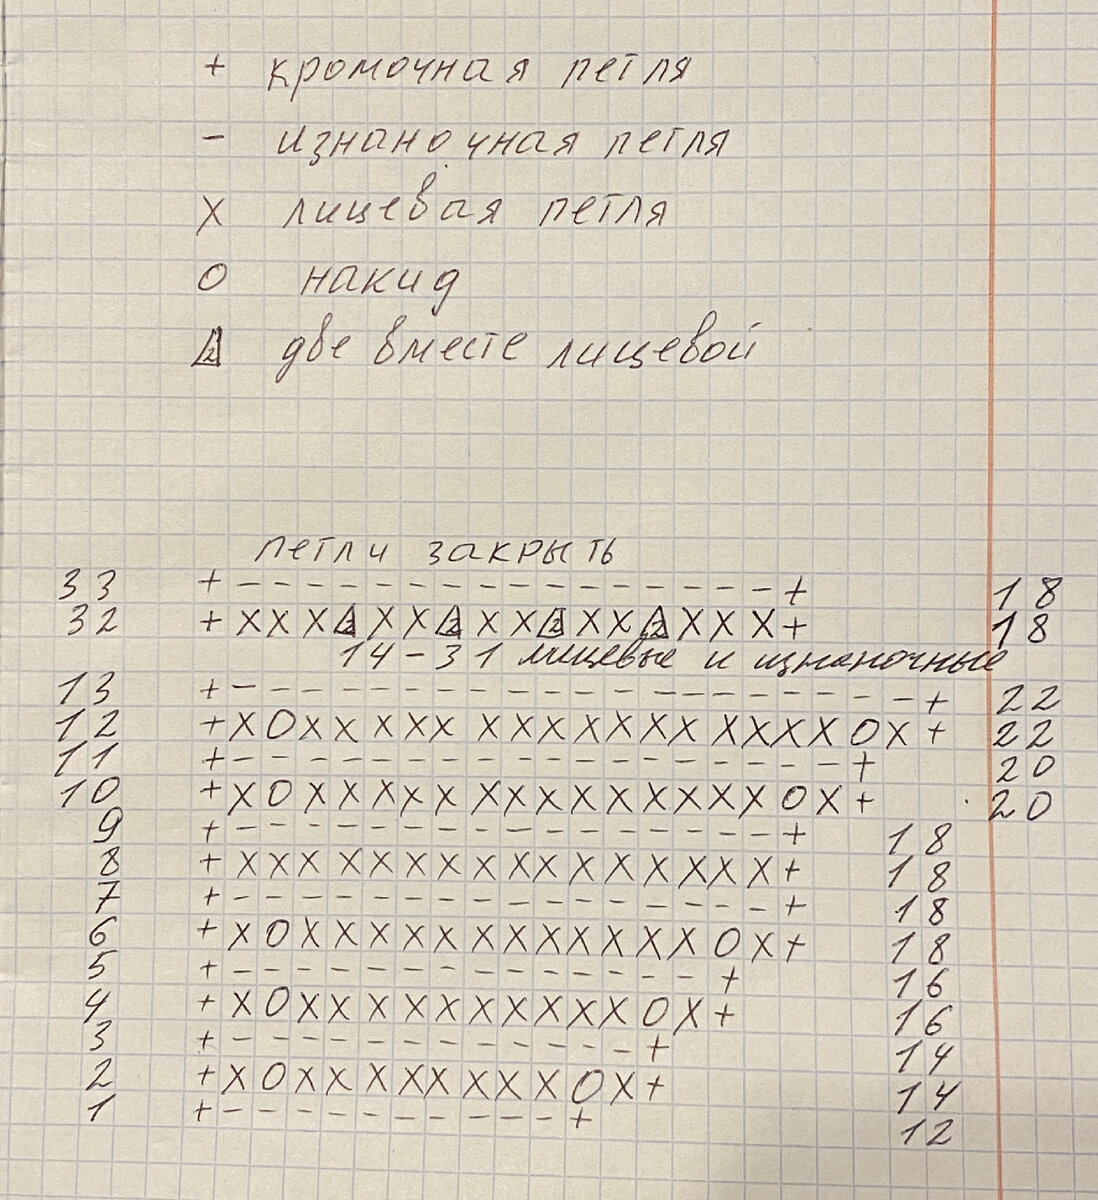 + кромочная петля
- изнаночная петля
X лицевая петля
O накид
2 две вместе лицевой
петли закрыть
33 +----------------+ 18
32 +XXX2XX2XX2XX2XXX+ 18
14-31 лицевые и изнаночные
13 +--------------------+ 22
12 +XOXXXXXXXXXXXXXXXXOX+ 22
11 +------------------+ 20
10 +XOXXXXXXXXXXXXXXOX+ 20
9 +----------------+ 18
8 +XXXXXXXXXXXXXXXX+ 18
7 +----------------+ 18
6 +XOXXXXXXXXXXXXOX+ 18
5 +--------------+ 16
4 +XOXXXXXXXXXXOX+ 16
3 +------------+ 14
2 +XOXXXXXXXXOX+ 14
1 +----------+ 12